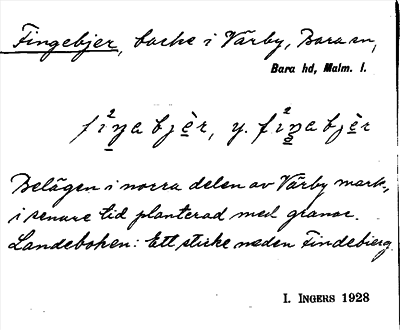 Fingebjer, backe i Värby, Bara sn,
Bara hd, Malm. l.
Belägen i norra delen av Värby mark,
i senare tid planterad med granar.
Landeboken: Ett sticke neden Findebierg.
I. INGERS 1928